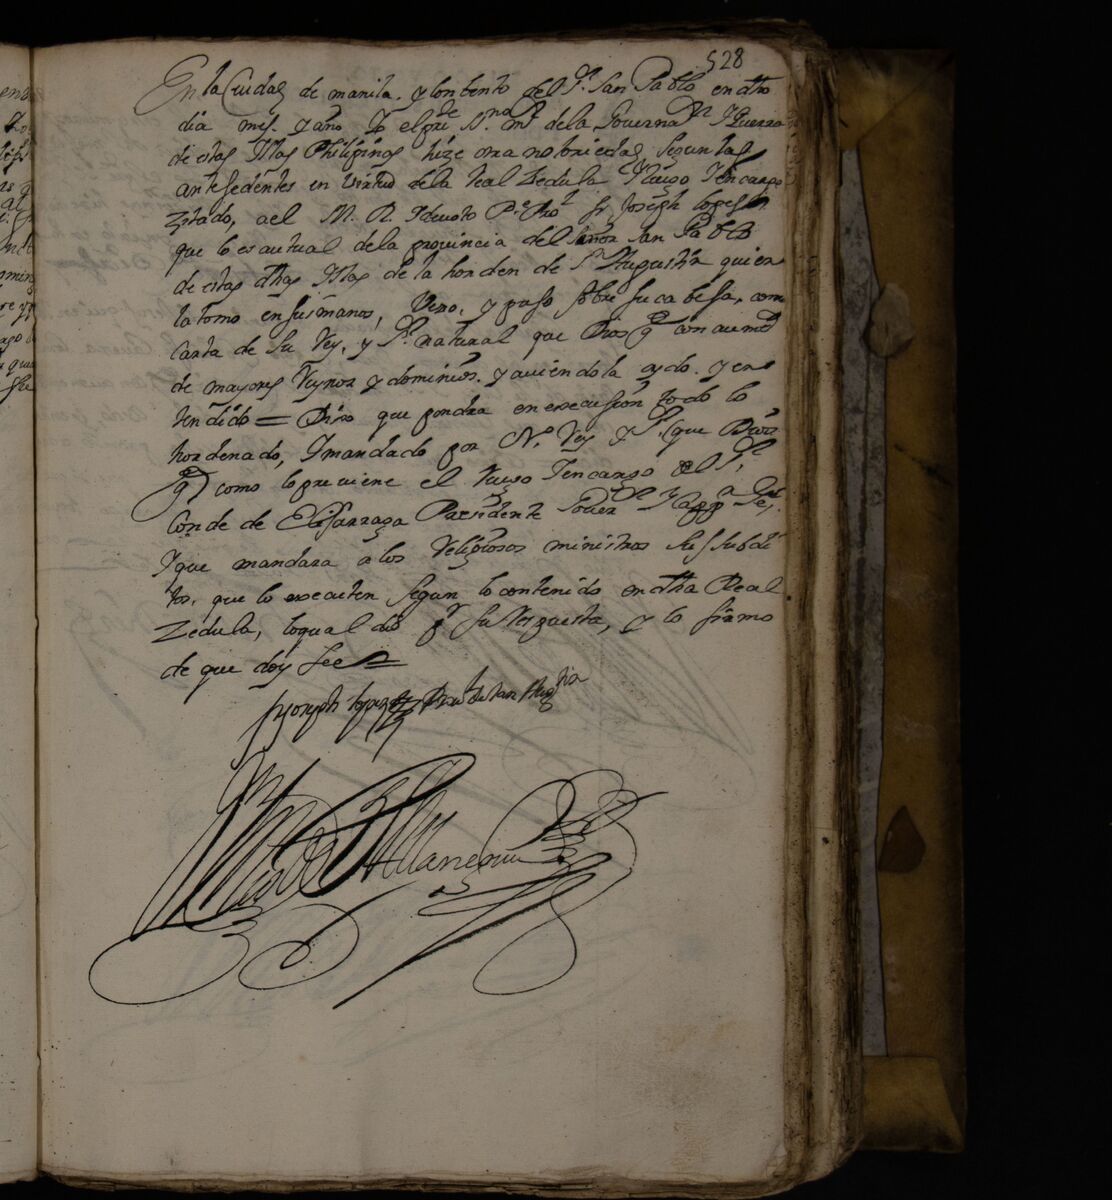 528
En la Ciudad de manila, y conbento del Sr San Pablo en dho
dia mes, y año Yo el presste ssno mr de la Governasn Y Guerra
de estas Yslas Philipinas hize otra notoriedad segun las
antesedentes en virtud de la Real Zedula Ruego Y encargo
Zitado, a el M. R. Y devoto Pe Prol fr Joseph lopes
que lo es autual de la provincia del Señor San Pablo
de estas dhas Yslas de la horden de Sn Augustin quien
la tomo en sus manos, Veso, y puso sobre su cabesa, como
Carta de su Rey, y Sr natural que Dios ge con aumto
de mayores Reynos y dominios, y aviendola oydo, y en
tendido = Dixo que pondra en execusion todo lo
hordenado, Y mandado por No Rey Y Sr (que Dios
ge) como lo previene el Ruego Y encargo del Sr
Conde de Elisarraga Presidente Gover or Y Cappn Genl
Y que mandara a los Religiosos ministros sus subdi
tos, que lo executen segun lo contenido en dha Real
Zedula, lo qual dio pr su Respuesta, y lo firmo
de que doy fee =
fr Joseph lopez Proal de san Augtin
Villanueva